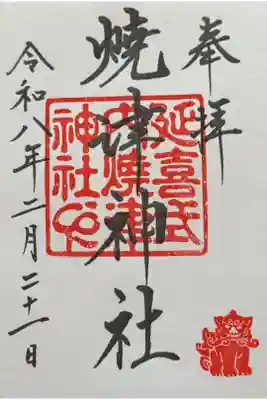 奉拝
焼津神社
延喜式
内焼津
神社之印
令和八年二月二十一日